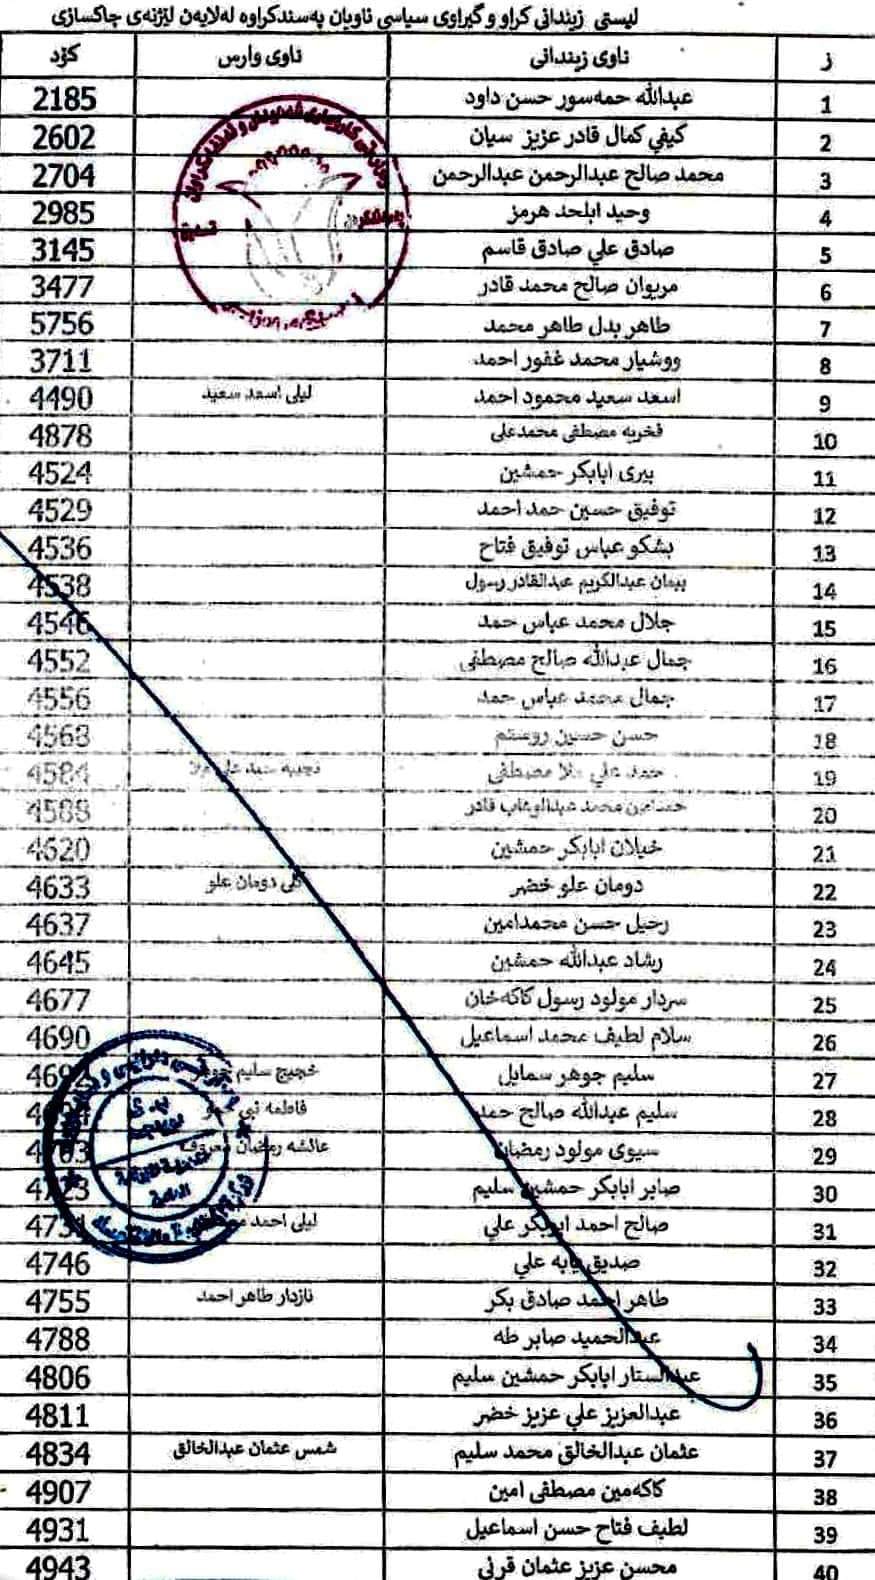 لیستی زیندانی کراو و گیراوی سیاسی ناویان پەسندکراوە لەلایەن لێژنەی چاکسازی
ز ناوی زیندانی ناوی وارس کۆد
1 عبدالله حمەسور حسن داود 2185
2 کیفي کمال قادر عزیز سیان 2602
3 محمد صالح عبدالرحمن عبدالرحمن 2704
4 وحید ابلحد هرمز 2985
5 صادق علي صادق قاسم 3145
6 مریوان صالح محمد قادر 3477
7 طاهر بدل طاهر محمد 5756
8 ووشیار محمد غفور احمد 3711
9 اسعد سعید محمود احمد لیلی اسعد سعید 4490
10 فخریه مصطفی محمدعلی 4878
11 بیری ابابکر حمشین 4524
12 توفیق حسین حمد احمد 4529
13 بشکو عباس توفیق فتاح 4536
14 بیمان عبدالکریم عبدالقادر رسول 4538
15 جلال محمد عباس حمد 4546
16 جمال عبدالله صالح مصطفی 4552
17 جمال محمد عباس حمد 4556
18 حسن حسین روستم 4568
19 حمد علي ملا مصطفی نجیبه حمد علي ملا 4584
20 حمدامین محمد عبدالوهاب قادر 4588
21 خیلان ابابکر حمشین 4620
22 دومان علو خضر گلی دومان علو 4633
23 رحیل حسن محمدامین 4637
24 رشاد عبدالله حمشین 4645
25 سردار مولود رسول کاکەخان 4677
26 سلام لطیف محمد اسماعیل 4690
27 سلیم جوهر سمایل خجیج سلیم جوهر
28 سلیم عبدالله صالح حمد فاطمه نبي
29 سیوی مولود رمضان عائشه رمضان معروف
30 صابر ابابکر حمشین سلیم 4723
31 صالح احمد ابوبکر علي لیلی احمد
32 صدیق بابه علي 4746
33 طاهر احمد صادق بکر نازدار طاهر احمد 4755
34 عبدالحمید صابر طه 4788
35 عبدالستار ابابکر حمشین سلیم 4806
36 عبدالعزیز علي عزیز خضر 4811
37 عثمان عبدالخالق محمد سلیم شمس عثمان عبدالخالق 4834
38 کاکەمین مصطفی امین 4907
39 لطیف فتاح حسن اسماعیل 4931
40 محسن عزیز عثمان قرني 4943